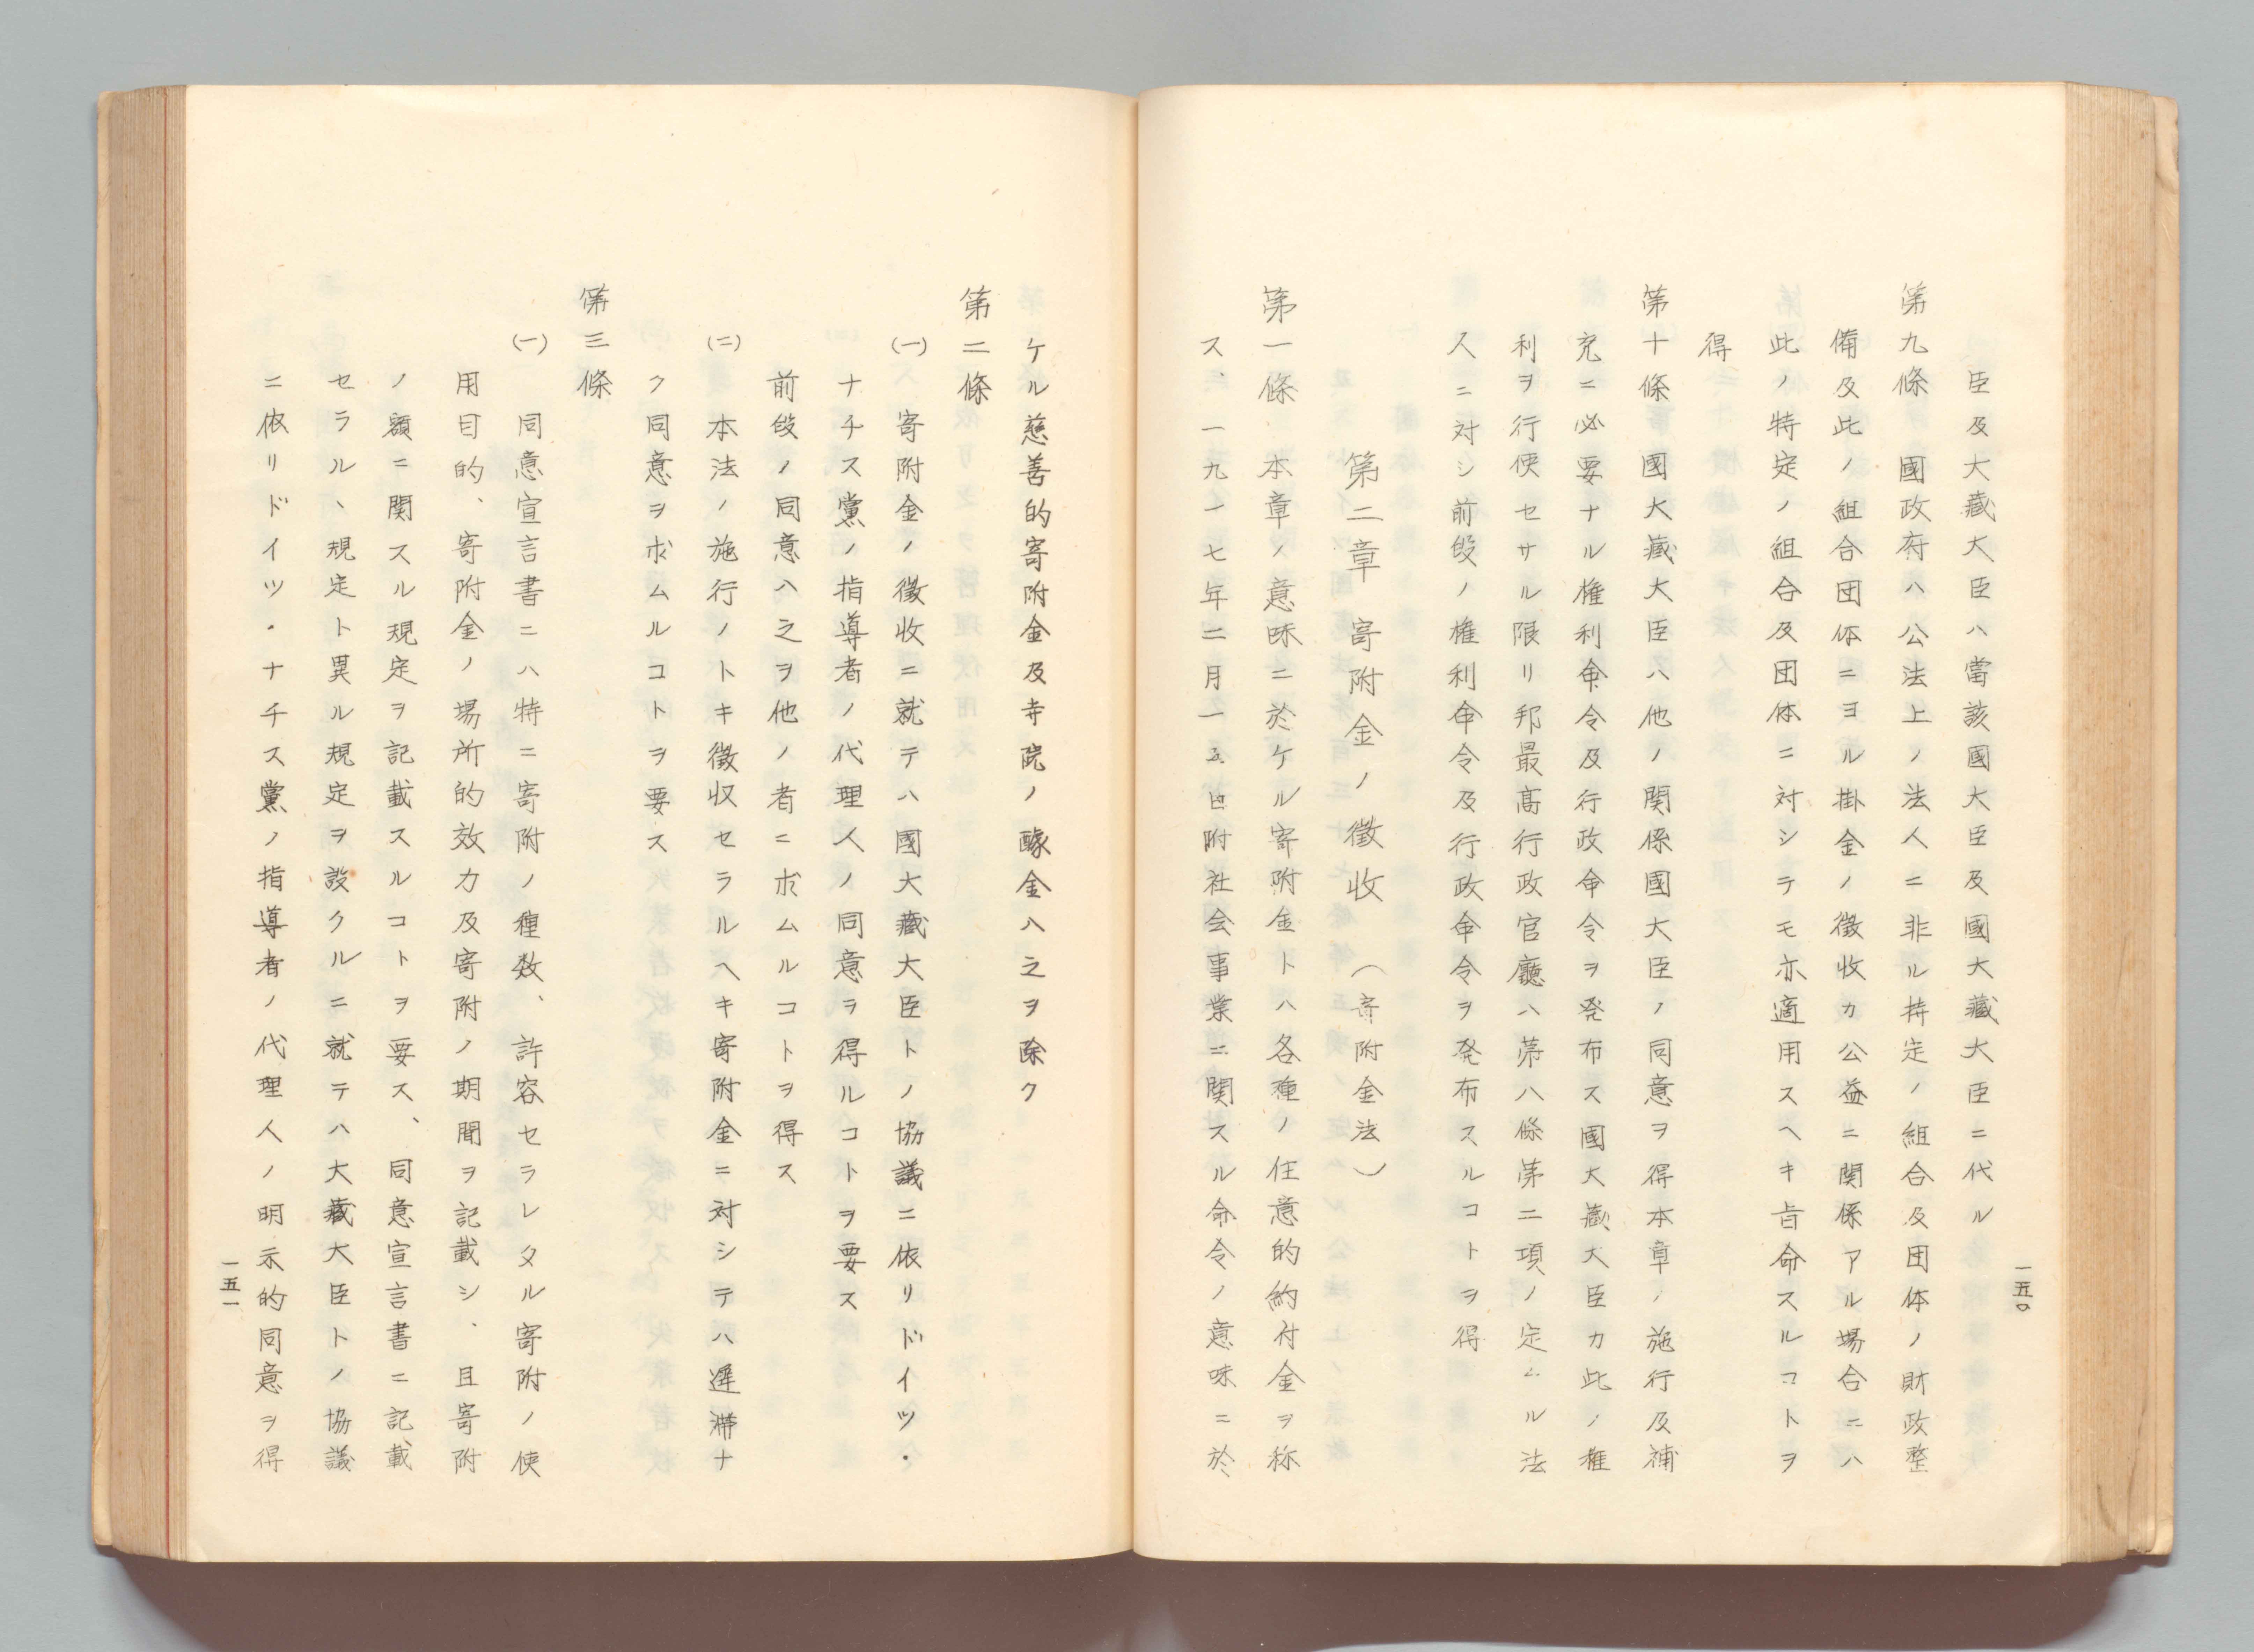 臣及大藏大臣ハ當該國大臣及國大藏大臣ニ代ル
第九條　國政府ハ公法上ノ法人ニ非ル特定ノ組合及団体ノ財政整
備及此ノ組合団体ニヨル掛金ノ徴收カ公益ニ関係アル場合ニハ
此ノ特定ノ組合及団体ニ対シテモ亦適用スヘキ旨命スルコトヲ
得
第十條　國大藏大臣ハ他ノ関係國大臣ノ同意ヲ得本章ノ施行及補
充ニ必要ナル権利命令及行政命令ヲ発布ス國大藏大臣カ此ノ権
利ヲ行使セサル限リ邦最高行政官廳ハ第八條第二項ノ定ムル法
人ニ対シ前段ノ権利命令及行政命令ヲ発布スルコトヲ得
第二章　寄附金ノ徴收　（寄附金法）
第一條　本章ノ意味ニ於ケル寄附金トハ各種ノ任意的約付金ヲ称
ス、一九一七年二月一五日附社会事業ニ関スル命令ノ意味ニ於
一五〇
ケル慈善的寄附金及寺院ノ醵金ハ之ヲ除ク
第二條
(一)　寄附金ノ徴收ニ就テハ國大藏大臣トノ協議ニ依リドイツ・
ナチス黨ノ指導者ノ代理人ノ同意ヲ得ルコトヲ要ス
前段ノ同意ハ之ヲ他ノ者ニ求ムルコトヲ得ス
(二)　本法ノ施行ノトキ徴収セラルヘキ寄附金ニ対シテハ遅滞ナ
ク同意ヲ求ムルコトヲ要ス
第三條
(一)　同意宣言書ニハ特ニ寄附ノ種数、許容セラレタル寄附ノ使
用目的、寄附金ノ場所的效力及寄附ノ期間ヲ記載シ、且寄附
ノ額ニ関スル規定ヲ記載スルコトヲ要ス、同意宣言書ニ記載
セラル、規定ト異ル規定ヲ設クルニ就テハ大藏大臣トノ協議
ニ依リドイツ・ナチス黨ノ指導者ノ代理人ノ明示的同意ヲ得
一五一